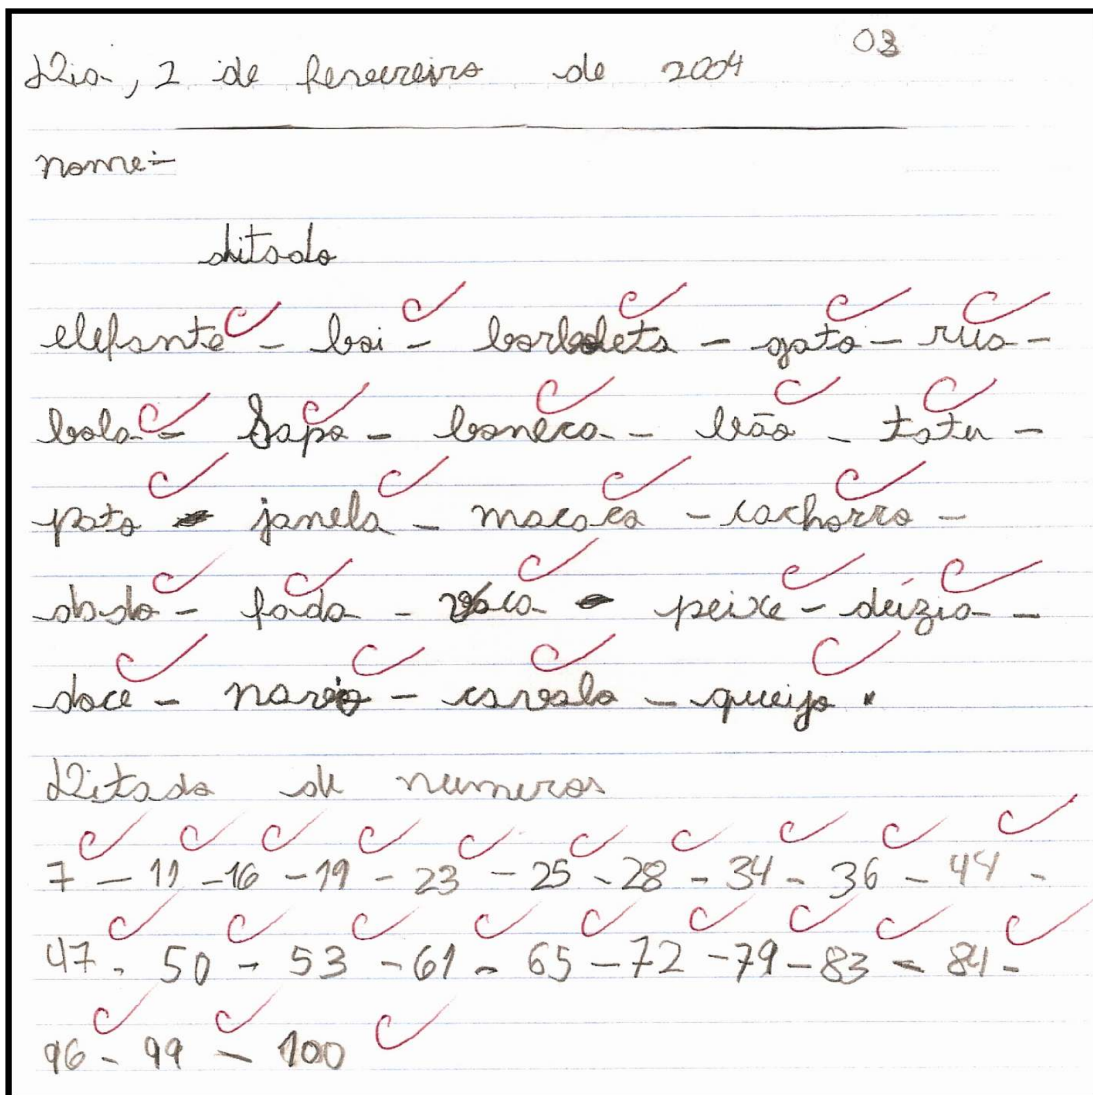 Rio, 2 de fevereiro de 2004 03
nome:
ditado
elefante - boi - borboleta - gato - rua -
bola - Sapo - boneca - leão - tatu -
pato - janela - macaco - cachorro -
dado - fada - vaca - peixe - deízia -
doce - navio - cavalo - queijo .
Ditado de numeros
7 - 11 - 16 - 19 - 23 - 25 - 28 - 34 - 36 - 44 -
47 - 50 - 53 - 61 - 65 - 72 - 79 - 83 - 84 -
96 - 99 - 100